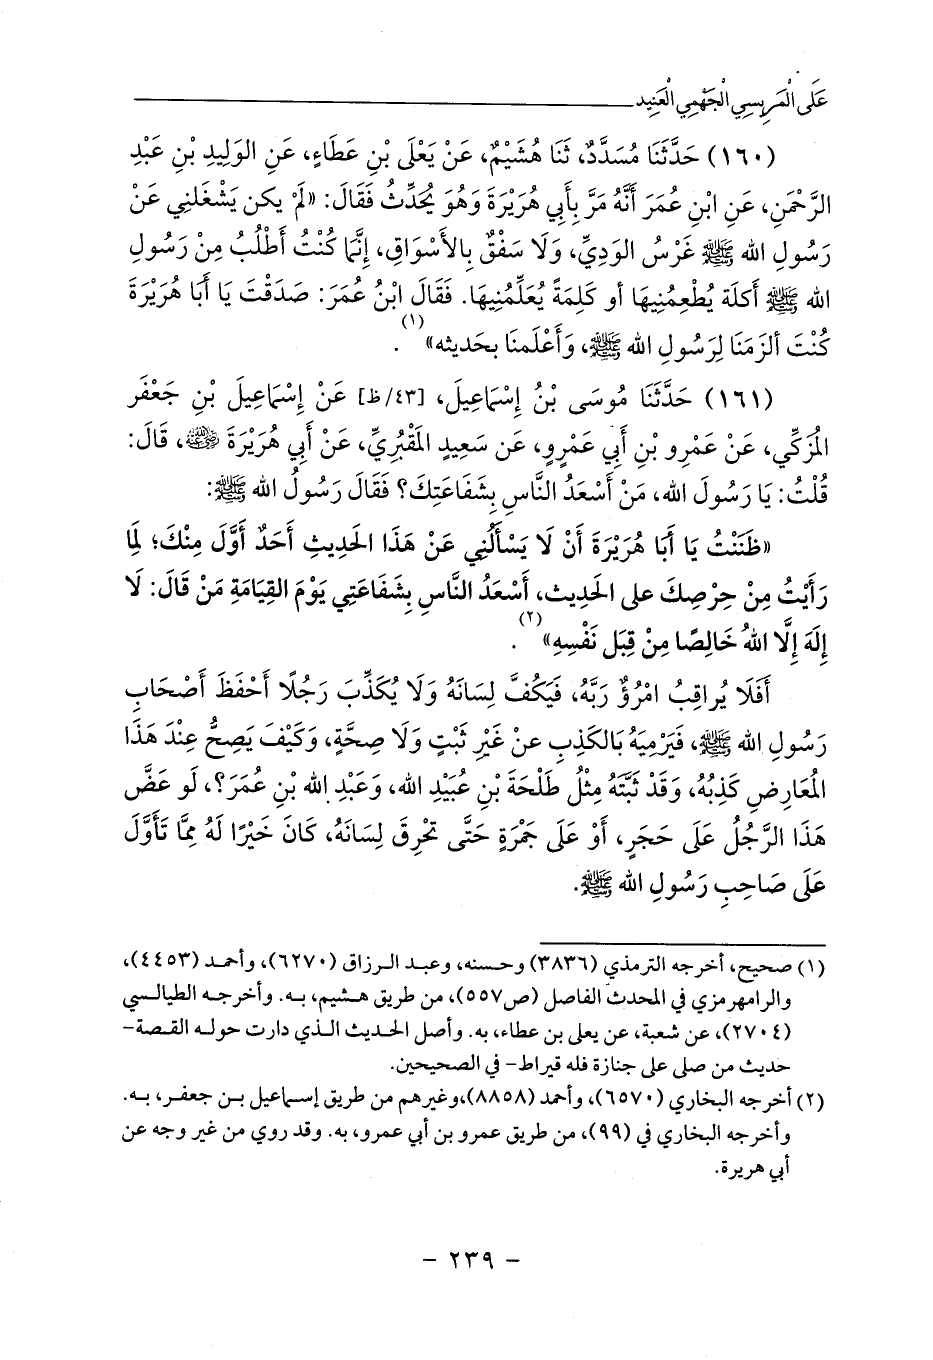 عَلَى الْمَرِيسِي الْجَهْمِي الْعَنِيد
(١٦٠) حَدَّثَنَا مُسَدَّدٌ، ثَنَا هُشَيْمٌ، عَنْ يَعْلَى بْنِ عَطَاءٍ، عَنِ الوَلِيدِ بْنِ عَبْدِ
الرَّحْمَنِ، عَنِ ابْنِ عُمَرَ أَنَّهُ مَرَّ بِأَبِي هُرَيْرَةَ وَهُوَ يُحَدِّثُ فَقَالَ: «لَمْ يكن يَشْغَلنِي عَنْ
رَسُولِ الله ﷺ غَرْسُ الوَدِيِّ، وَلَا سَفْقٌ بِالأَسْوَاقِ، إِنَّمَا كُنْتُ أَطْلُبُ مِنْ رَسُولِ
الله ﷺ أَكلَة يُطْعِمُنِيهَا أو كَلِمَةً يُعَلِّمُنِيهَا. فَقَالَ ابْنُ عُمَرَ: صَدَقْتَ يَا أَبَا هُرَيْرَةَ
كُنْتَ ألزَمَنَا لِرَسُولِ الله ﷺ، وَأَعْلَمنَا بحَديثه»(١).
(١٦١) حَدَّثَنَا مُوسَى بْنُ إِسْمَاعِيلَ، [٤٣/ظ] عَنْ إِسْمَاعِيلَ بْنِ جَعْفَر
المُزَكِّي، عَنْ عَمْرِو بْنِ أَبِي عَمْرٍو، عَن سَعِيدٍ المَقْبُرِيِّ، عَنْ أَبِي هُرَيْرَةَ رضي الله عنه، قَالَ:
قُلْتُ: يَا رَسُولَ الله، مَنْ أَسْعَدُ النَّاسِ بِشَفَاعَتِكَ؟ فَقَالَ رَسُولُ الله ﷺ:
«ظَنَنْتُ يَا أَبَا هُرَيْرَةَ أَنْ لَا يَسْأَلُنِي عَنْ هَذَا الحَدِيثِ أَحَدٌ أَوَّلَ مِنْكَ؛ لِمَا
رَأَيْتُ مِنْ حِرْصِكَ على الحَدِيث، أَسْعَدُ النَّاسِ بِشَفَاعَتِي يَوْمَ القِيَامَةِ مَنْ قَالَ: لَا
إِلَهَ إِلَّا اللهُ خَالِصًا مِنْ قِبَل نَفْسِهِ»(٢).
أَفَلَا يُراقِبُ امْرُؤٌ رَبَّهُ، فَيَكُفَّ لِسَانَهُ وَلَا يُكَذِّبَ رَجُلًا أَحْفَظَ أَصْحَابِ
رَسُولِ الله ﷺ، فَيَرْمِيَهُ بَالكَذِبِ عنْ غَيْرِ ثَبْتٍ وَلَا صِحَّةٍ، وَكَيْفَ يَصِحُّ عِنْدَ هَذَا
المُعَارِضِ كَذِبُهُ، وَقَدْ ثَبَّتَهُ مِثْلُ طَلْحَةَ بْنِ عُبَيْدِ الله، وَعَبْدِ الله بْنِ عُمَرَ؟، لَو عَضَّ
هَذَا الرَّجُلُ عَلَى حَجَرٍ، أَوْ عَلَى جَمْرَةٍ حَتَّى تحْرِقَ لِسَانَهُ، كَانَ خَيْرًا لَهُ مِمَّا تَأَوَّلَ
عَلَى صَاحِبِ رَسُولِ الله ﷺ.
(١) صحيح، أخرجه الترمذي (٣٨٣٦) وحسنه، وعبد الرزاق (٦٢٧٠)، وأحمد (٤٤٥٣)،
والرامهرمزي في المحدث الفاصل (ص٥٥٧)، من طريق هشيم، به. وأخرجه الطيالسي
(٢٧٠٤)، عن شعبة، عن يعلى بن عطاء، به. وأصل الحديث الذي دارت حوله القصة-
حديث من صلى على جنازة فله قيراط- في الصحيحين.
(٢) أخرجه البخاري (٦٥٧٠)، وأحمد (٨٨٥٨)،وغيرهم من طريق إسماعيل بن جعفر، به.
وأخرجه البخاري في (٩٩)، من طريق عمرو بن أبي عمرو، به. وقد روي من غير وجه عن
أبي هريرة.
- ٢٣٩ -